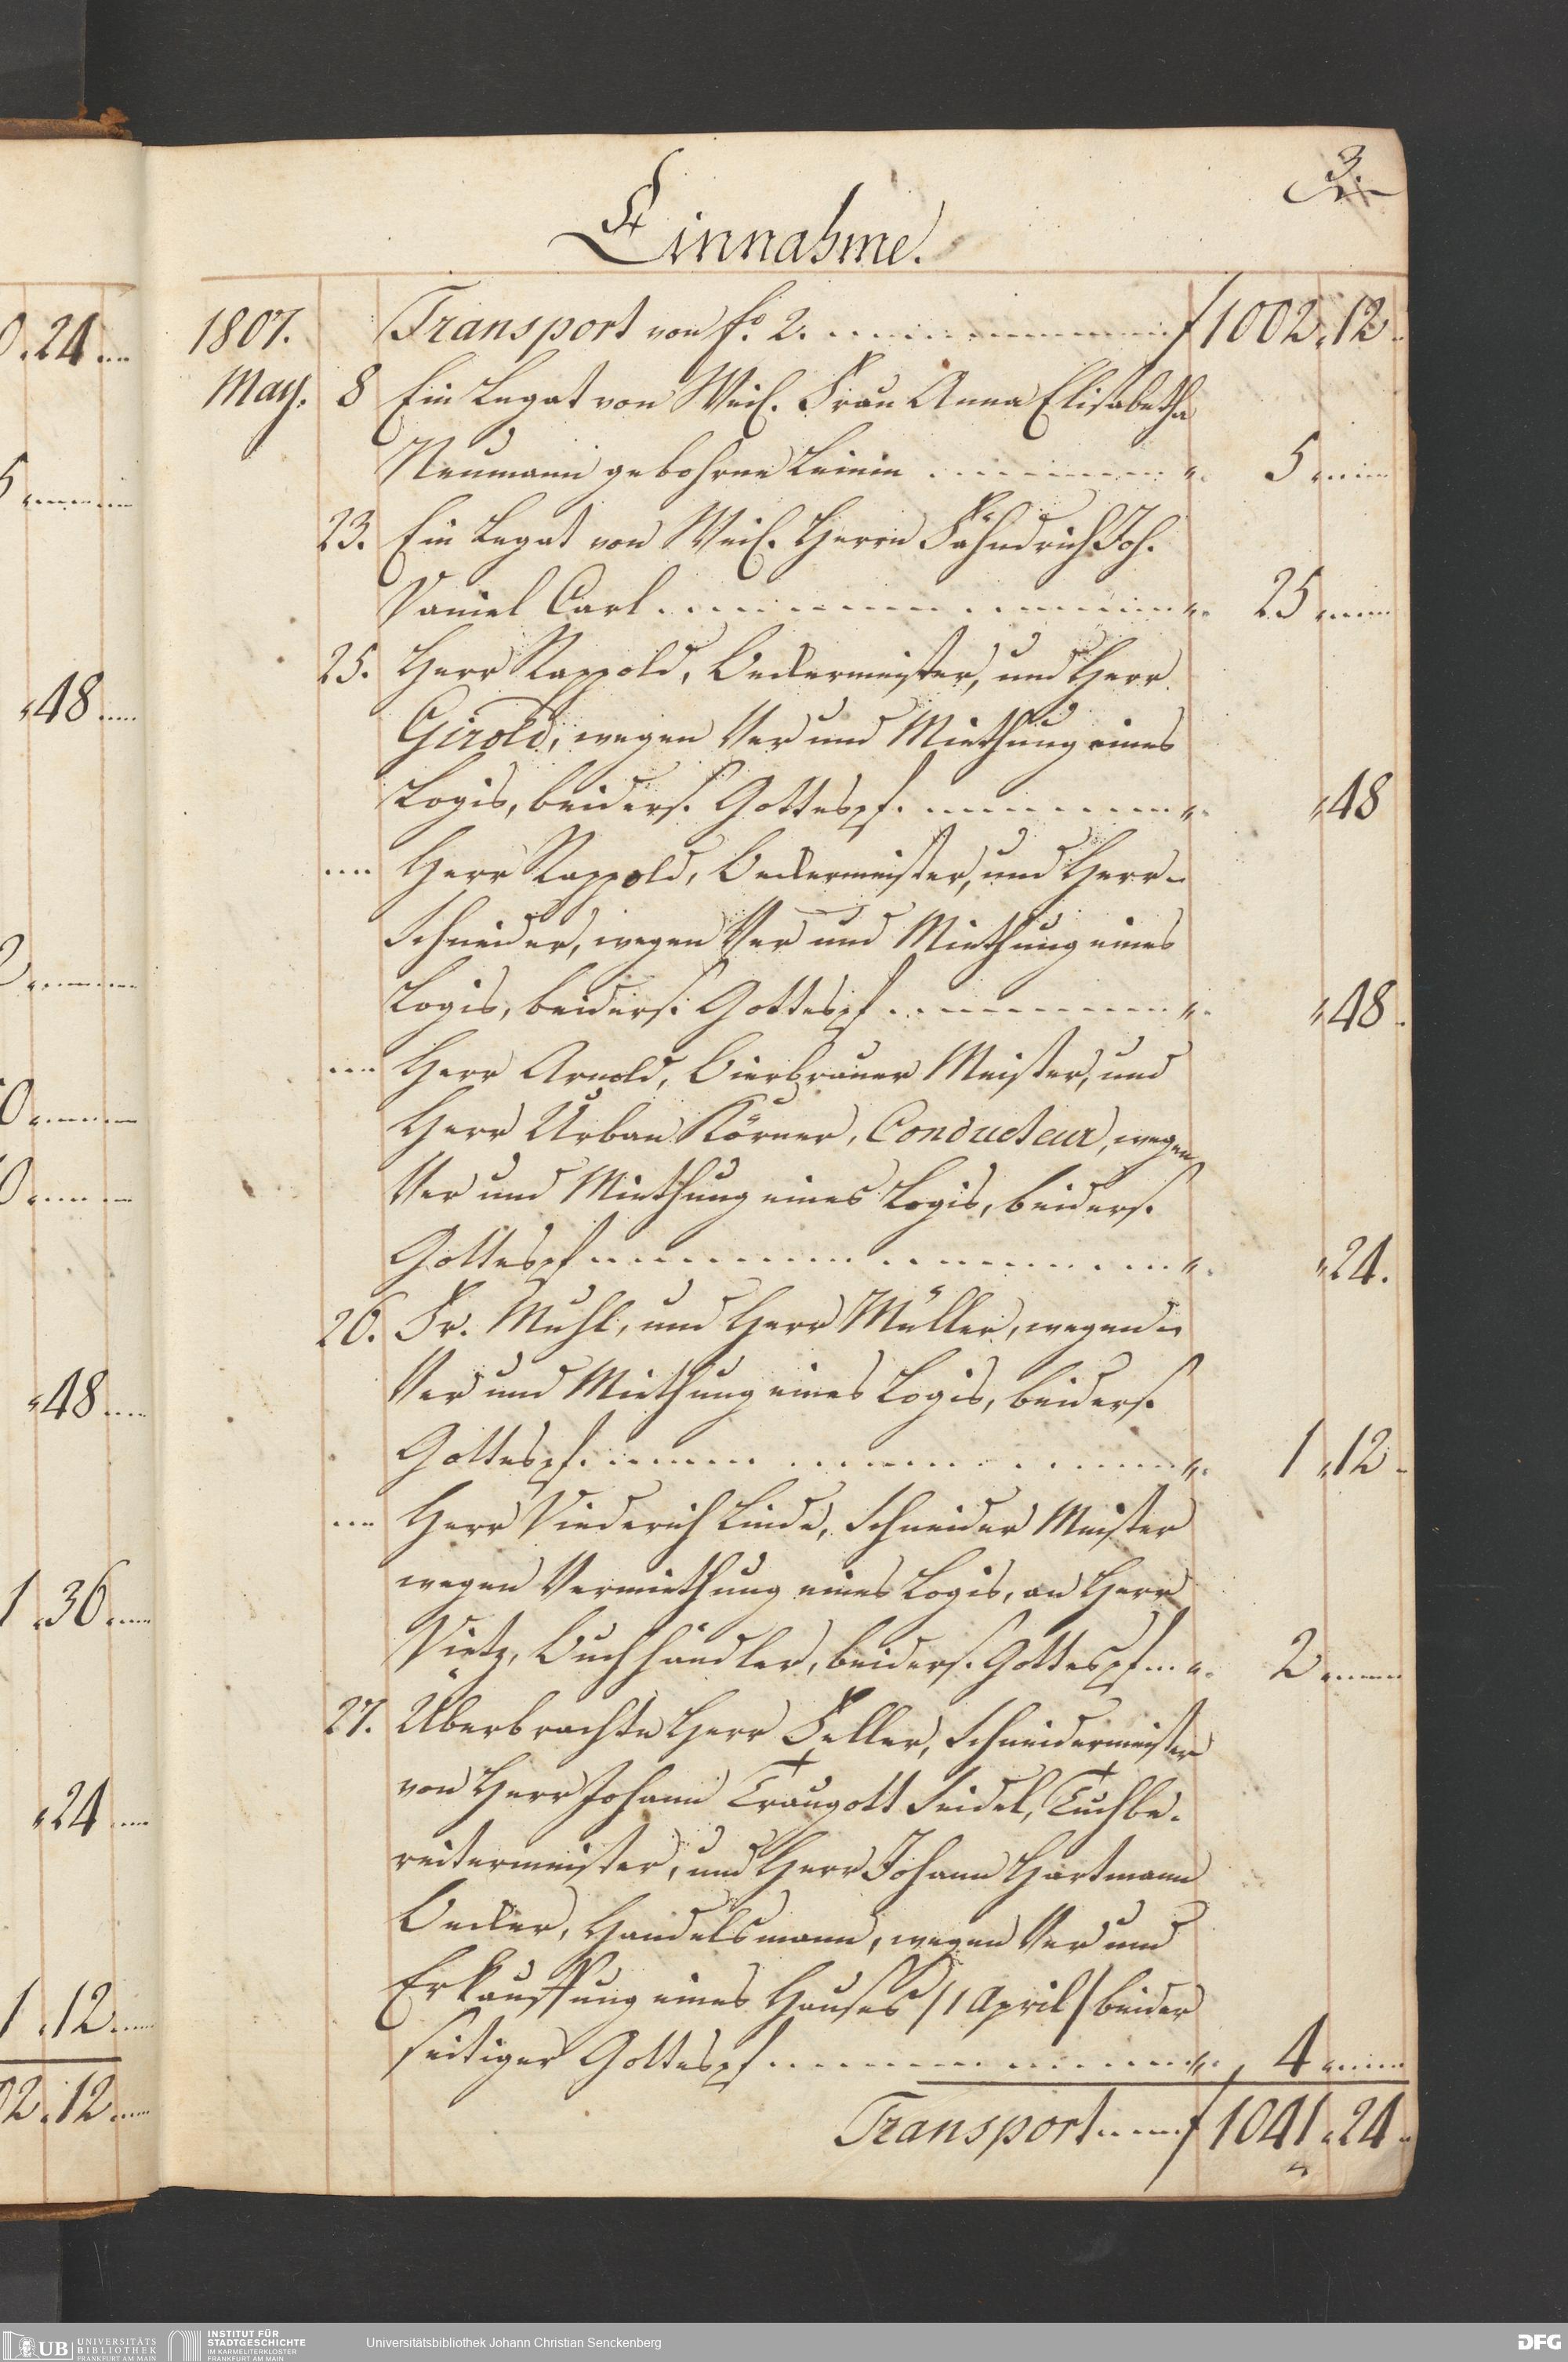 3.
Einnahme.
1807. Transport von f.o 2. f 1002 „ 12
May. 8 Ein Legat von Weil. Frau Anna Elisabetha
Neumann gebohrne Leinin „ 5
23. Ein Legat von Weil. Herrn Fähndrich Joh.
Daniel Carl „ 25
25. Herr Rappold, Beckermeister, und Herr
Girold, wegen Ver und Miethung eines
Logis, beiders. Gottespf. „ „ 48
Herr Rappold, Beckermeister, und Herr
Schneider, wegen Ver und Miethung eines
Logis, beiders. Gottespf „ „ 48
Herr Arnold, Bierbrauer Meister, und
Herr Urban Körner, Conducteur, wegen
Ver und Miethung eines Logis, beiders.
Gottespf „ „ 24.
26. Fr. Muhl, und Herr Müller, wegen
Ver und Miethung eines Logis, beiders.
Gottespf. „ 1 „ 12
Herr Diederich Linde, Schneider Meister
wegen Vermiethung eines Logis, an Herr
Dietz, Buchhändler, beiders. Gottespf „ 2
27. Überbrachte Herr Feller, Schneidermeister
von Herr Johann Traugott Seidel, Tuchbe-
reitermeister, und Herr Johann Hartmann
Becker, Handelsmann, wegen Ver und
Erkauffung eines Hauses /1 April/ beider
seitiger Gottespf „ 4
Transport f 1041 „ 24
0 . 24
5
„ 48
2
0
0
„ 48
1 . 36
„ 24
1 . 12
02 . 12
UB UNIVERSITÄTS
BIBLIOTHEK
FRANKFURT AM MAIN
INSTITUT FÜR
STADTGESCHICHTE
IM KARMELITERKLOSTER
FRANKFURT AM MAIN
Universitätsbibliothek Johann Christian Senckenberg
DFG